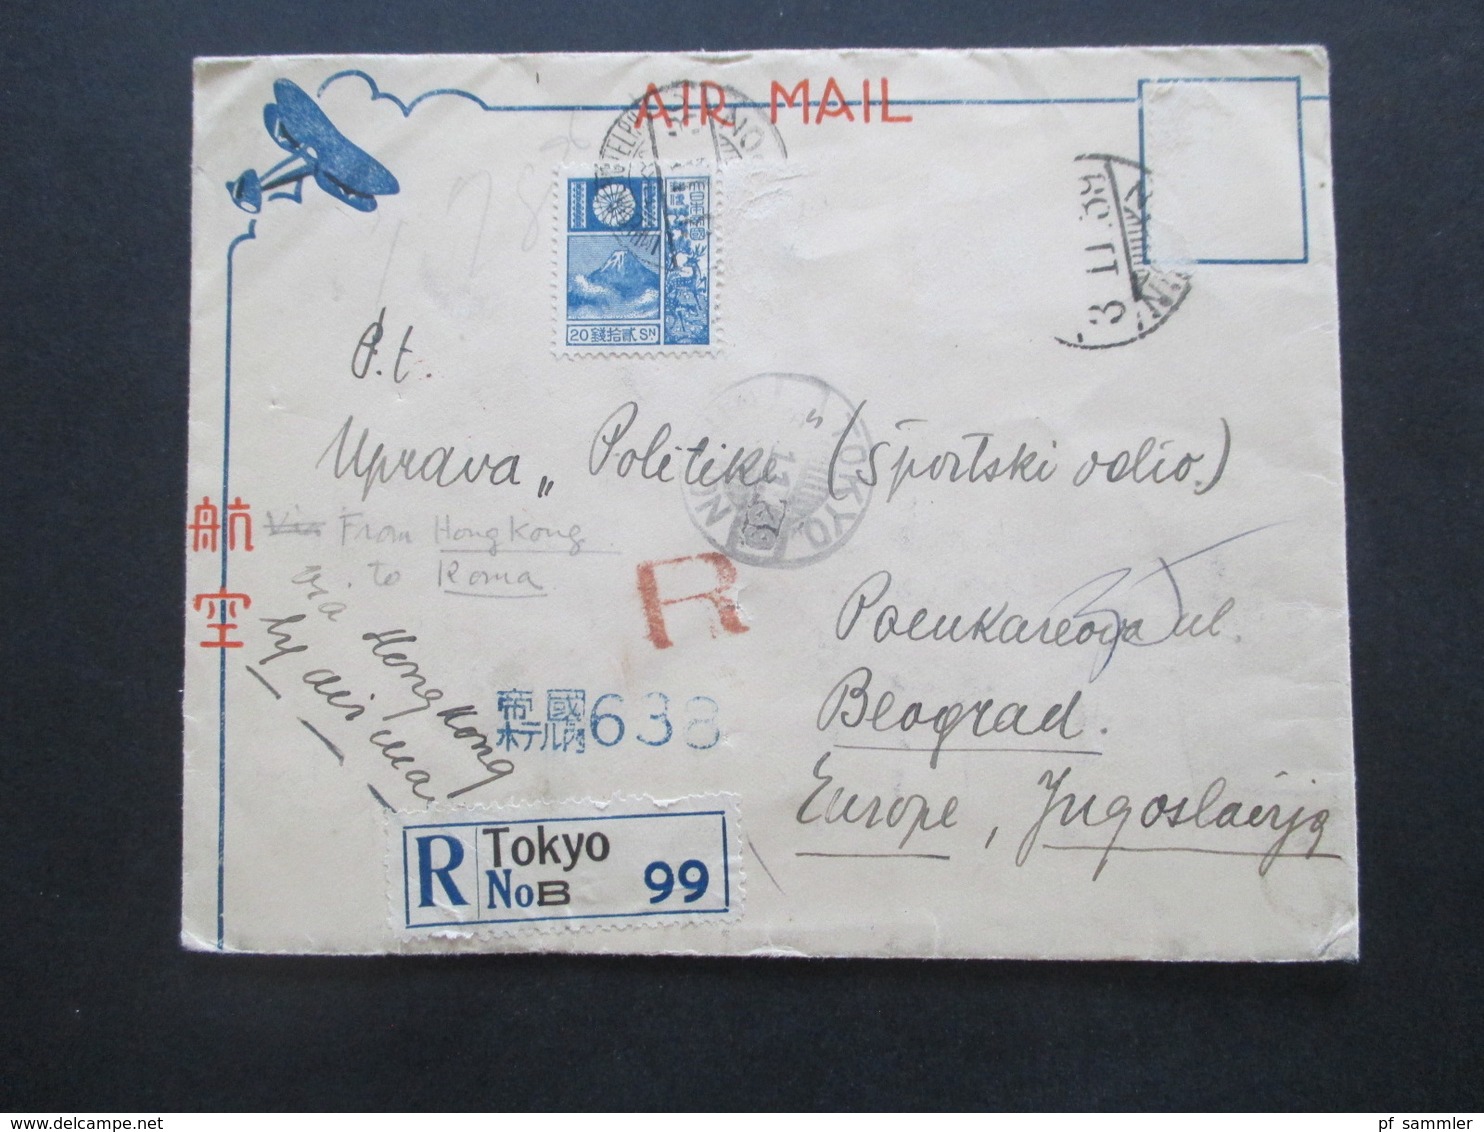 AIR MAIL
大日本帝國郵便
20 錢拾貳 SN
3 11 39
P.t.
Uprava „Politike“ (Športski odio.)
TOKYO
航空
Via From Hong Kong
to Roma
via Hong Kong
by air mail
R
Poenkareova ul.
Beograd.
Europe, Jugoslavija
帝國
ホテル内 638
R Tokyo
No B 99
pf_sammler